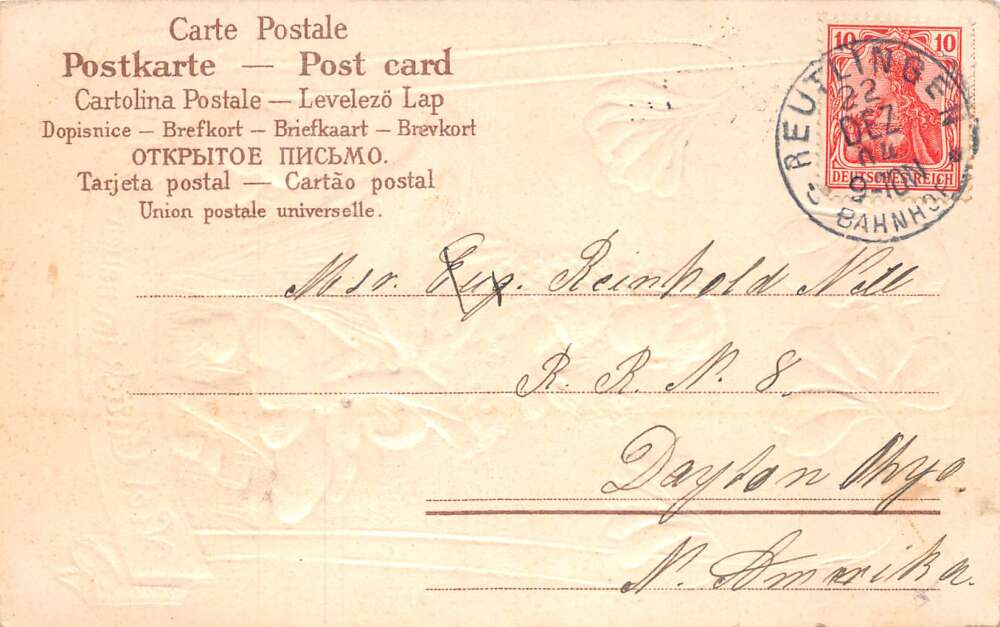 Carte Postale
Postkarte — Post card
Cartolina Postale — Levelező Lap
Dopisnice – Brefkort – Briefkaart – Brevkort
ОТКРЫТОЕ ПИСЬМО.
Tarjeta postal — Cartão postal
Union postale universelle.
10 10
DEUTSCHES REICH
REUTLINGEN
22
DEZ
04
9-10N
BAHNHOF
Msr. Eug. Reinhold Nell
R. R. N. 8.
Dayton Ohyo.
N. Amerika.